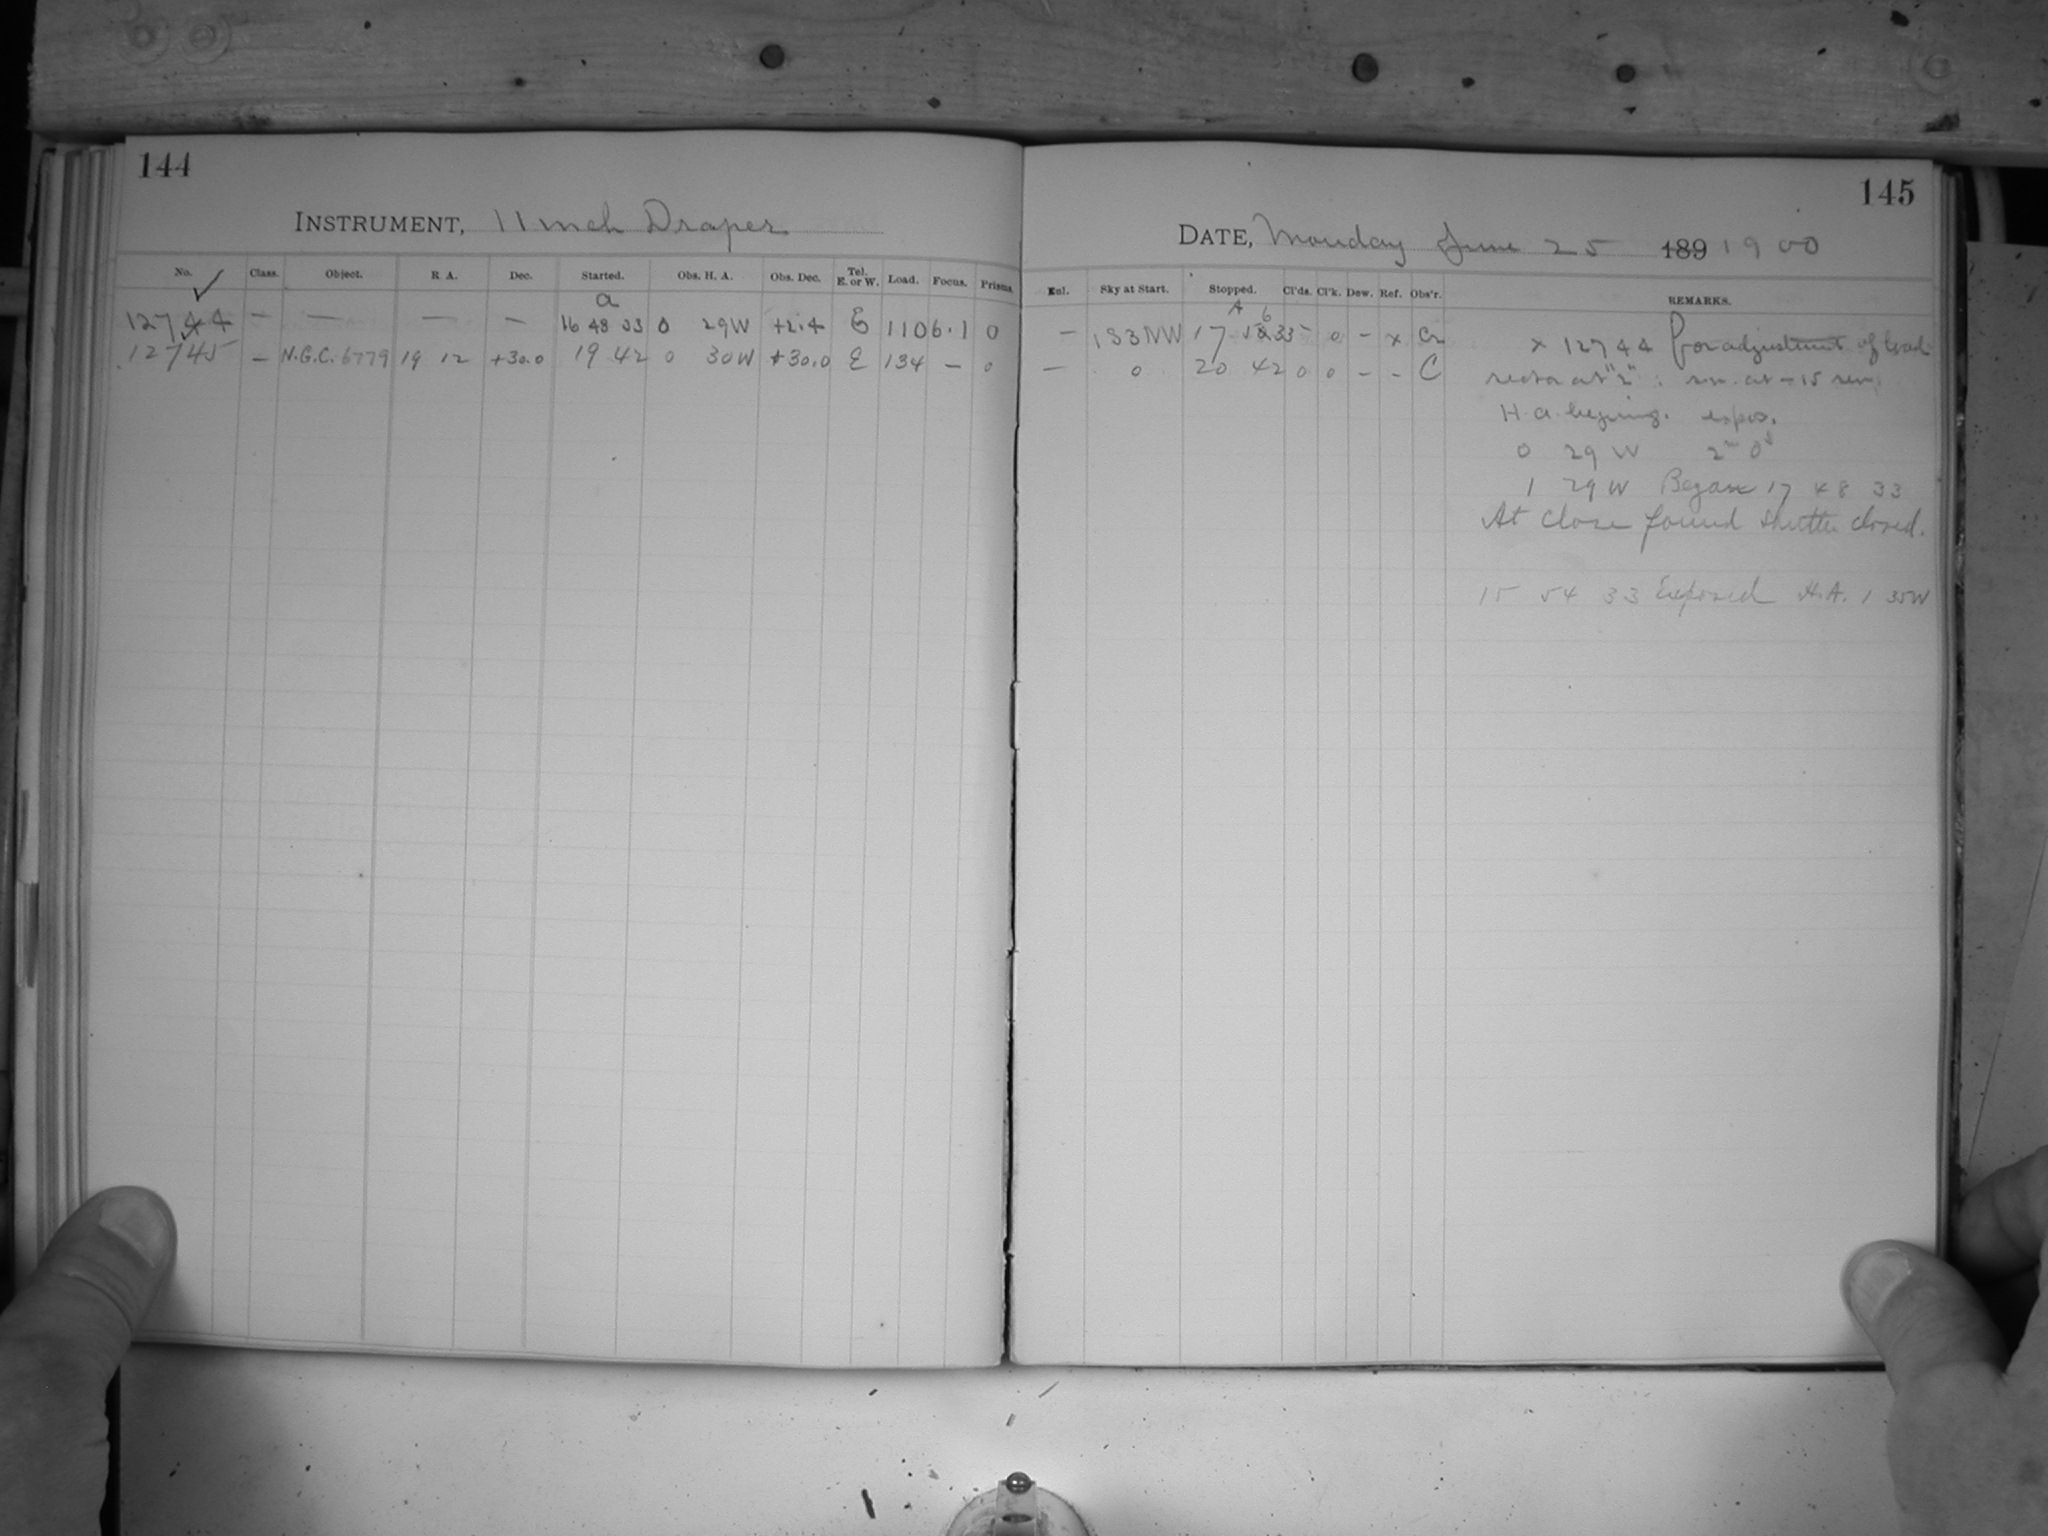 144
INSTRUMENT, 11 inch Draper
No. Class. Object. R. A. Dec. Started. Obs. H. A. Obs. Dec. Tel. E. or W. Load. Focus. Prisms.
a
12744 — — — — 16 48 33 0 29W +2.4 E 110 6.1 0
12745 — N.G.C. 6779 19 12 +30.0 19 42 0 30W +30.0 E 134 — 0
145
DATE, Monday June 25 189 1900
Exl. Sky at Start. Stopped. Cl'ds. Cl'k. Dew. Ref. Obs'r. REMARKS.
— 1S3NW 17 33 0 — x x 12744 for adjustment of
— 0 20 42 0 0 — — C at "2" at —15
H. a. expos.
0 29 W 2m 0s
1 29 W Began 17 48 33
At close found shutter closed.
15 54 33 Exposed H.A. 1 35W